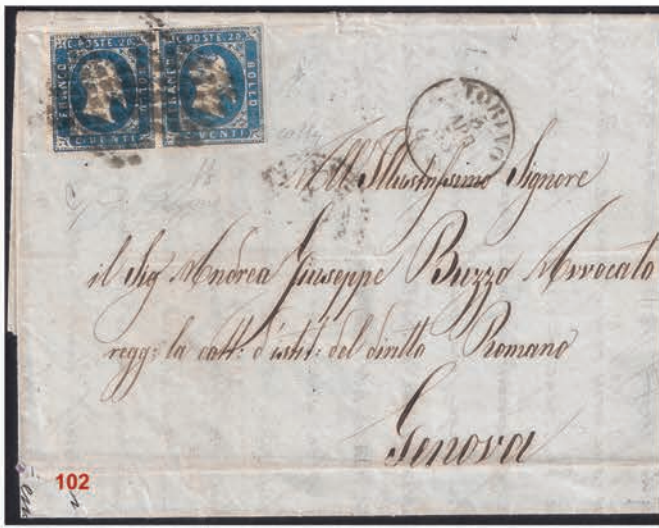 C. POSTE. 20 C. POSTE. 20
FRANCO BOLLO FRANCO BOLLO
C. VENTI C. VENTI
TORINO
APR
All Illustrissimo Signore
il Sig Andrea Giuseppe Buzzo Avvocato
regg: la catt: d'istit: del diritto Romano
Genova
102